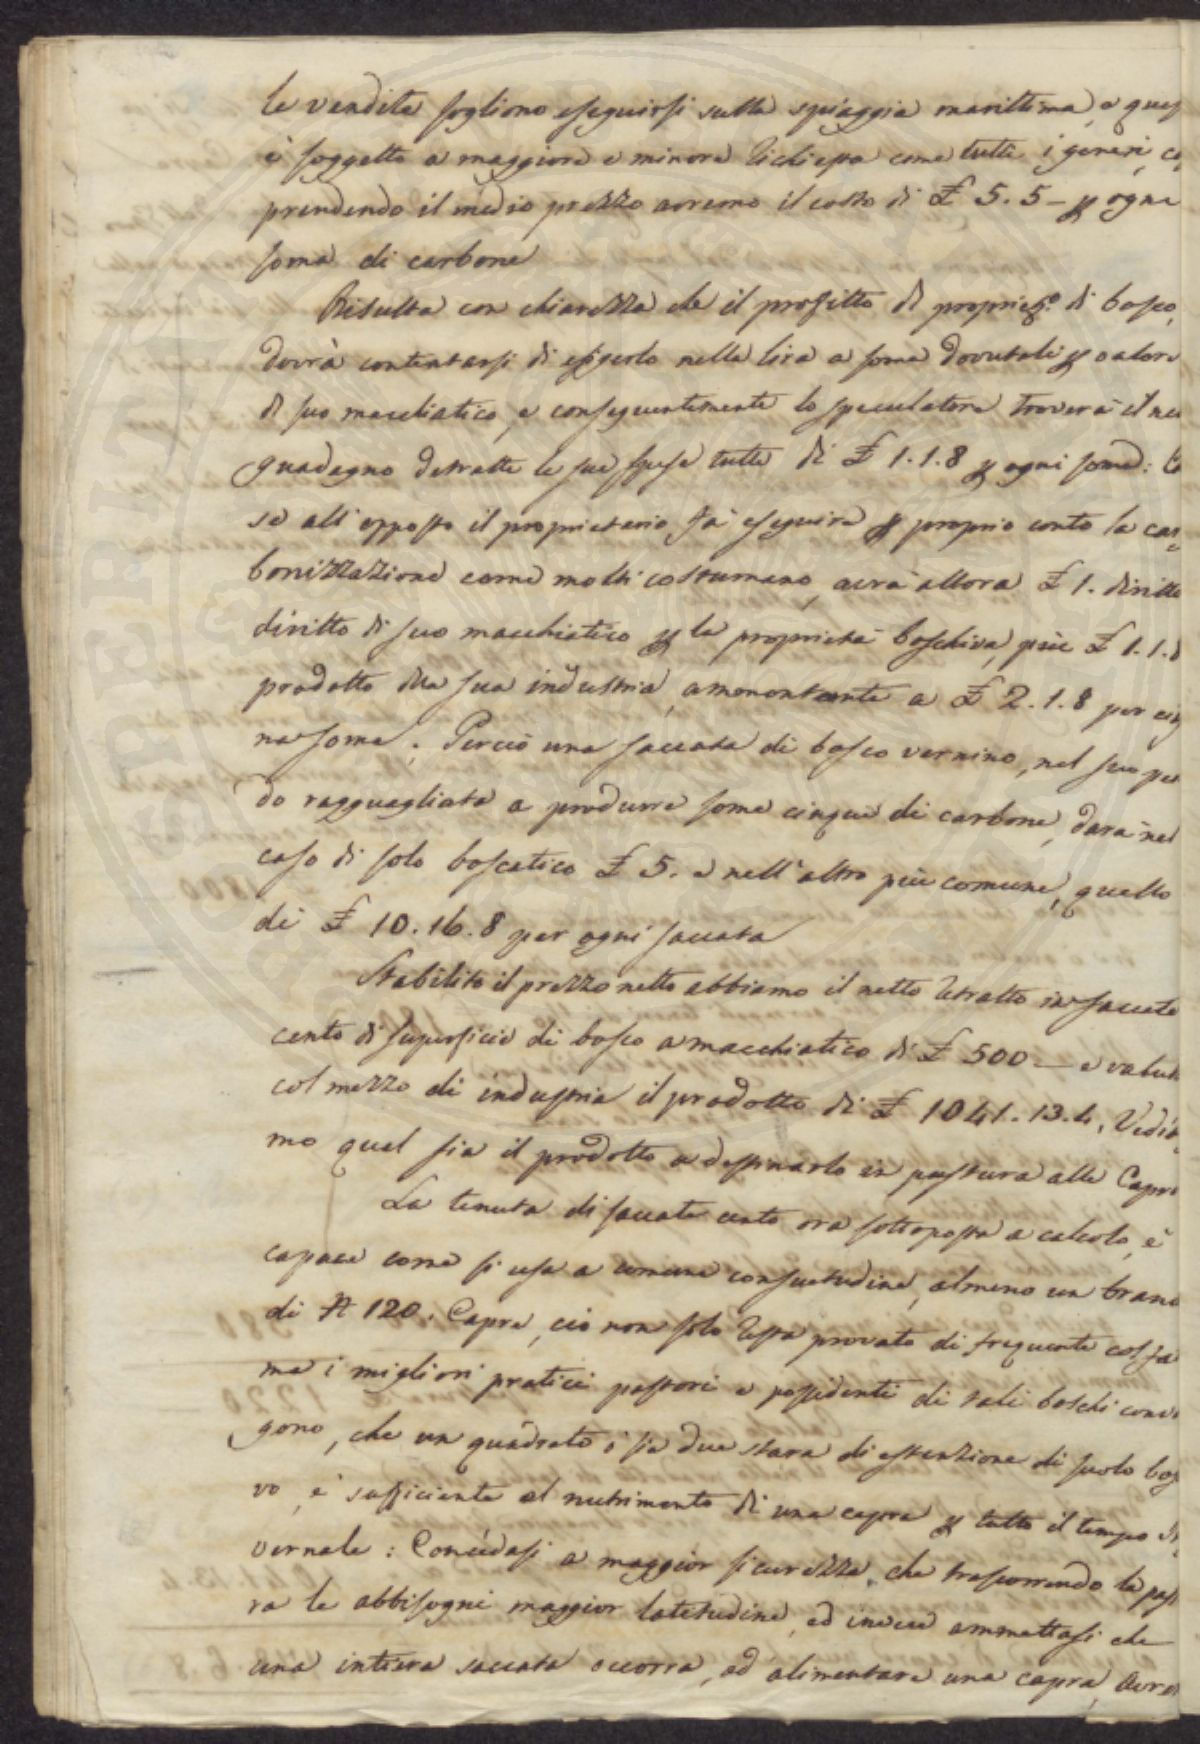 le vendite sogliono eseguirsi sulla spiaggia marittima, e ques
è soggetto a maggiore e minore richiesta come tutti i generi, co,
prendendo il medio prezzo avremo il costo di £ 5. 5 – p ogni
soma di carbone
Risulta con chiarezza che il profitto di propriet.o di bosco,
dovrà contentarsi di esigerlo nella lira a soma dovutali p valore
di suo macchiatico, e conseguentemente lo speculatore troverà il ne
guadagno detratte le sue spese tutte di £ 1.1.8 p ogni soma:
se all'opposto il proprietario fa eseguire p proprio conto la car,
bonizzazione come molti costumano, avrà allora £ 1. diritto
diritto di suo macchiatico p la proprietà boschiva, più £ 1.1.8
prodotto dlla sua industria, amomontante a £ 2.1.8 per cia
na soma. Perciò una saccata di bosco vernino, nel suo pe
do ragguagliata a produrre some cinque di carbone, darà nel
caso di solo boscatico £ 5. e nell'altro più comune, quello
di £ 10.16.8 per ogni saccata
Stabilito il prezzo netto abbiamo il netto retratto in saccate
cento di superficie di bosco a macchiatico di £ 500 — e valut
col mezzo di industria il prodotto di £ 1041.13.4. Vedia
mo qual sia il prodotto a destinarlo in pastura alle Capre
La tenuta di saccate cento ora sottoposta a calcolo, è
capace come si usa a comune consuetudine, almeno un branc
di N 120. Capre, ciò non solo resta provato di frequente col fa
ma i migliori pratici pastori e possidenti di tali boschi conve
gono, che un quadrato o sia due stara di estenzione di suolo bos
vo, è sufficiente al nutrimento di una capra p tutto il tempo
vernale: Concedasi a maggior sicurezza, che trascorrendo la past
ra le abbisogni maggior latitudine, ed invece ammettasi che
una intiera saccata occorra, ad alimentare una capra, avre